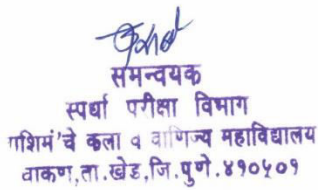 समन्वयक
स्पर्धा परीक्षा विभाग
गशिमं'चे कला व वाणिज्य महाविद्यालय
वाकण,ता.खेड,जि.पुणे.४१०५०१